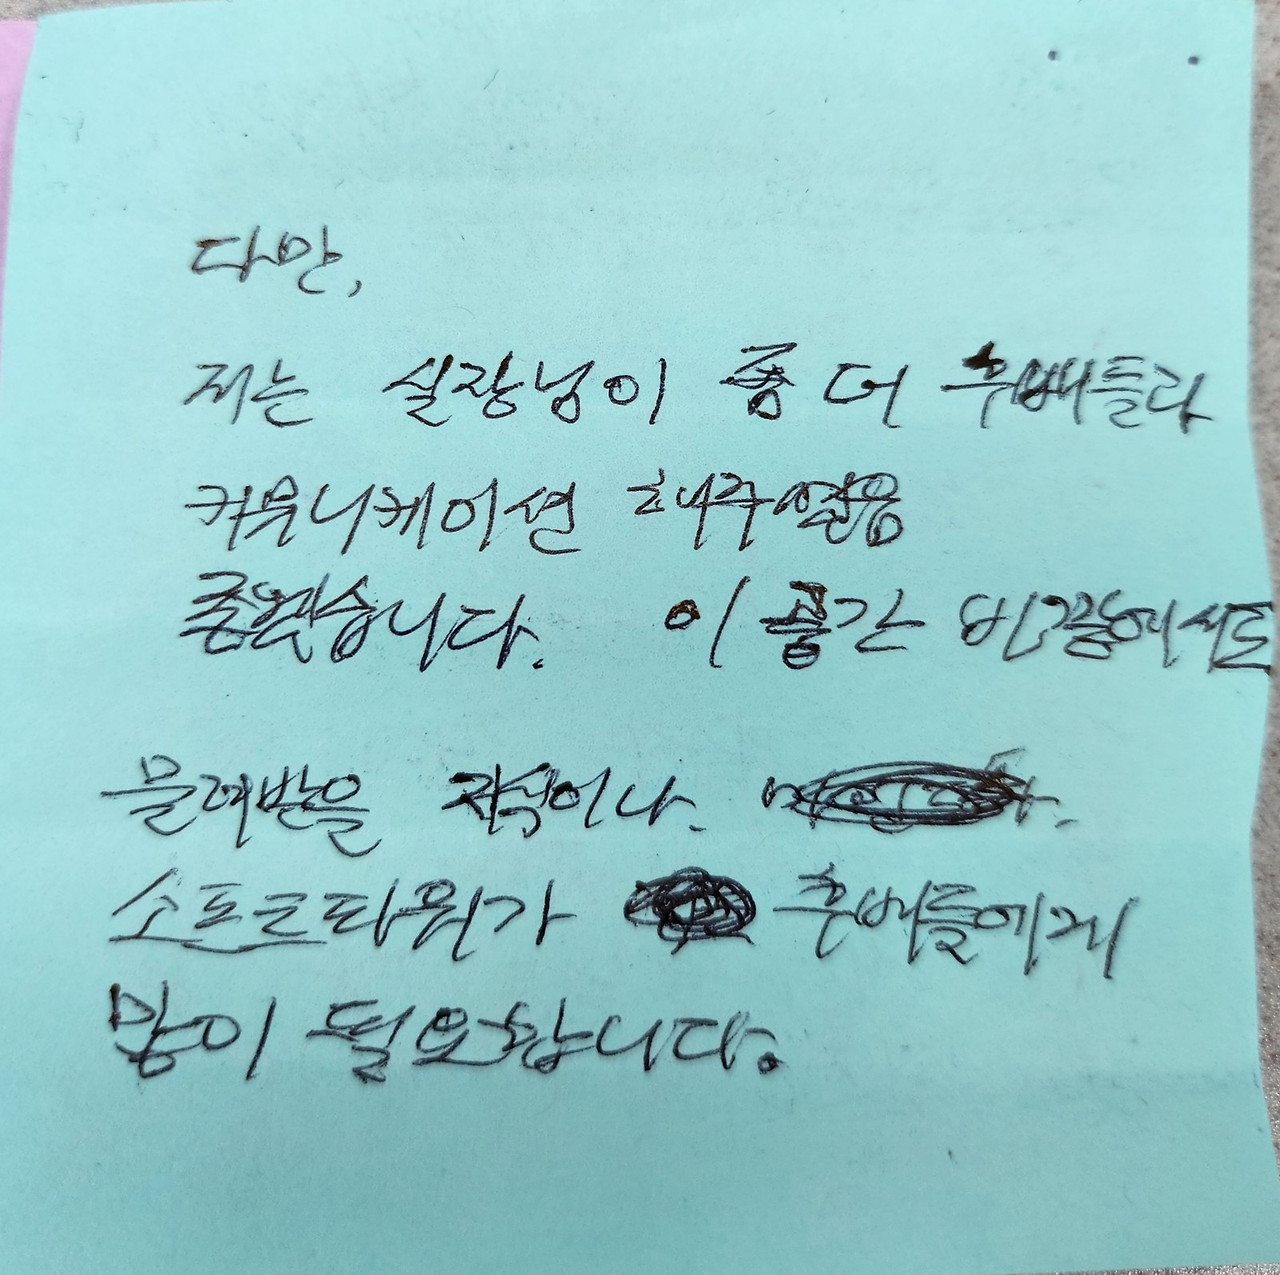 다만,
저는 실장님이 좀 더 후배들과
커뮤니케이션 해주셨음
좋겠습니다. 이 공간 바깥에서도
물려받을 지식이나
소프트파워가 후배들에게
많이 필요합니다.